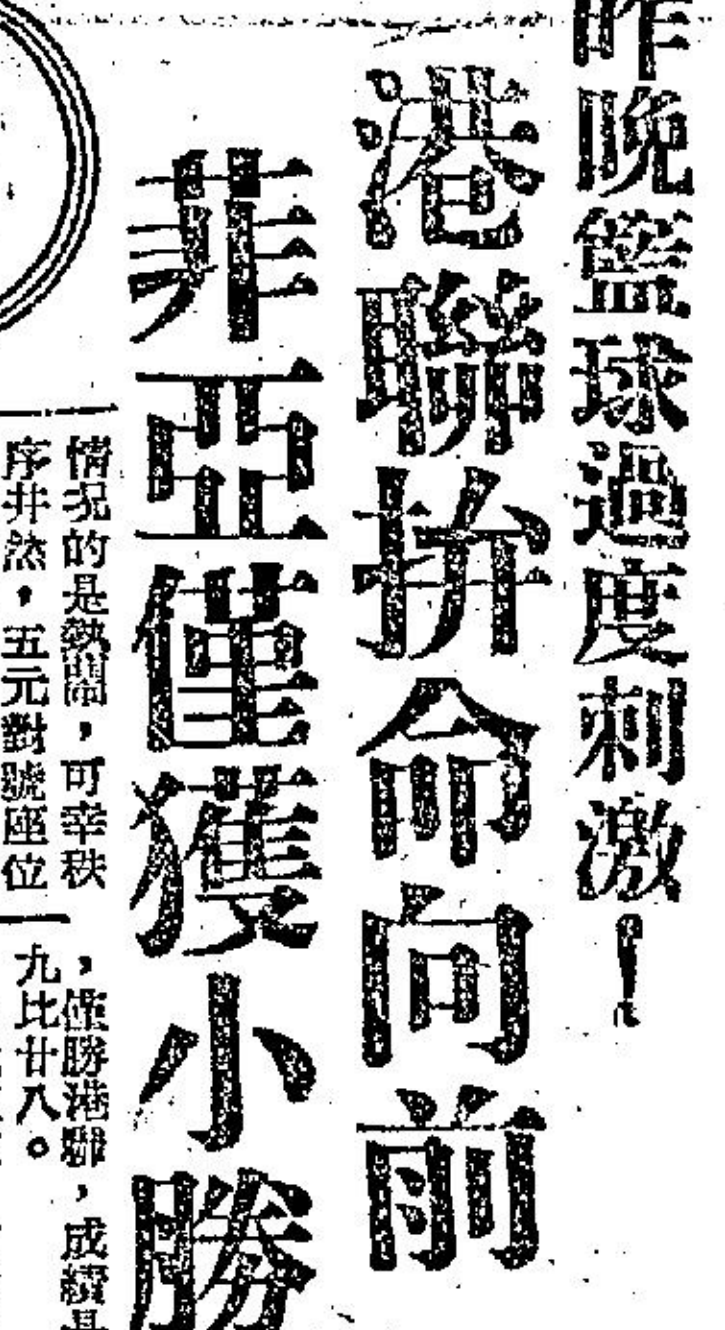 昨晚籃球過度刺激！
港聯拚命向前
菲亞僅獲小勝
情況的是熱鬧，可幸秩
序井然，五元對號座位
，僅勝港聯，成績是
九比廿八。